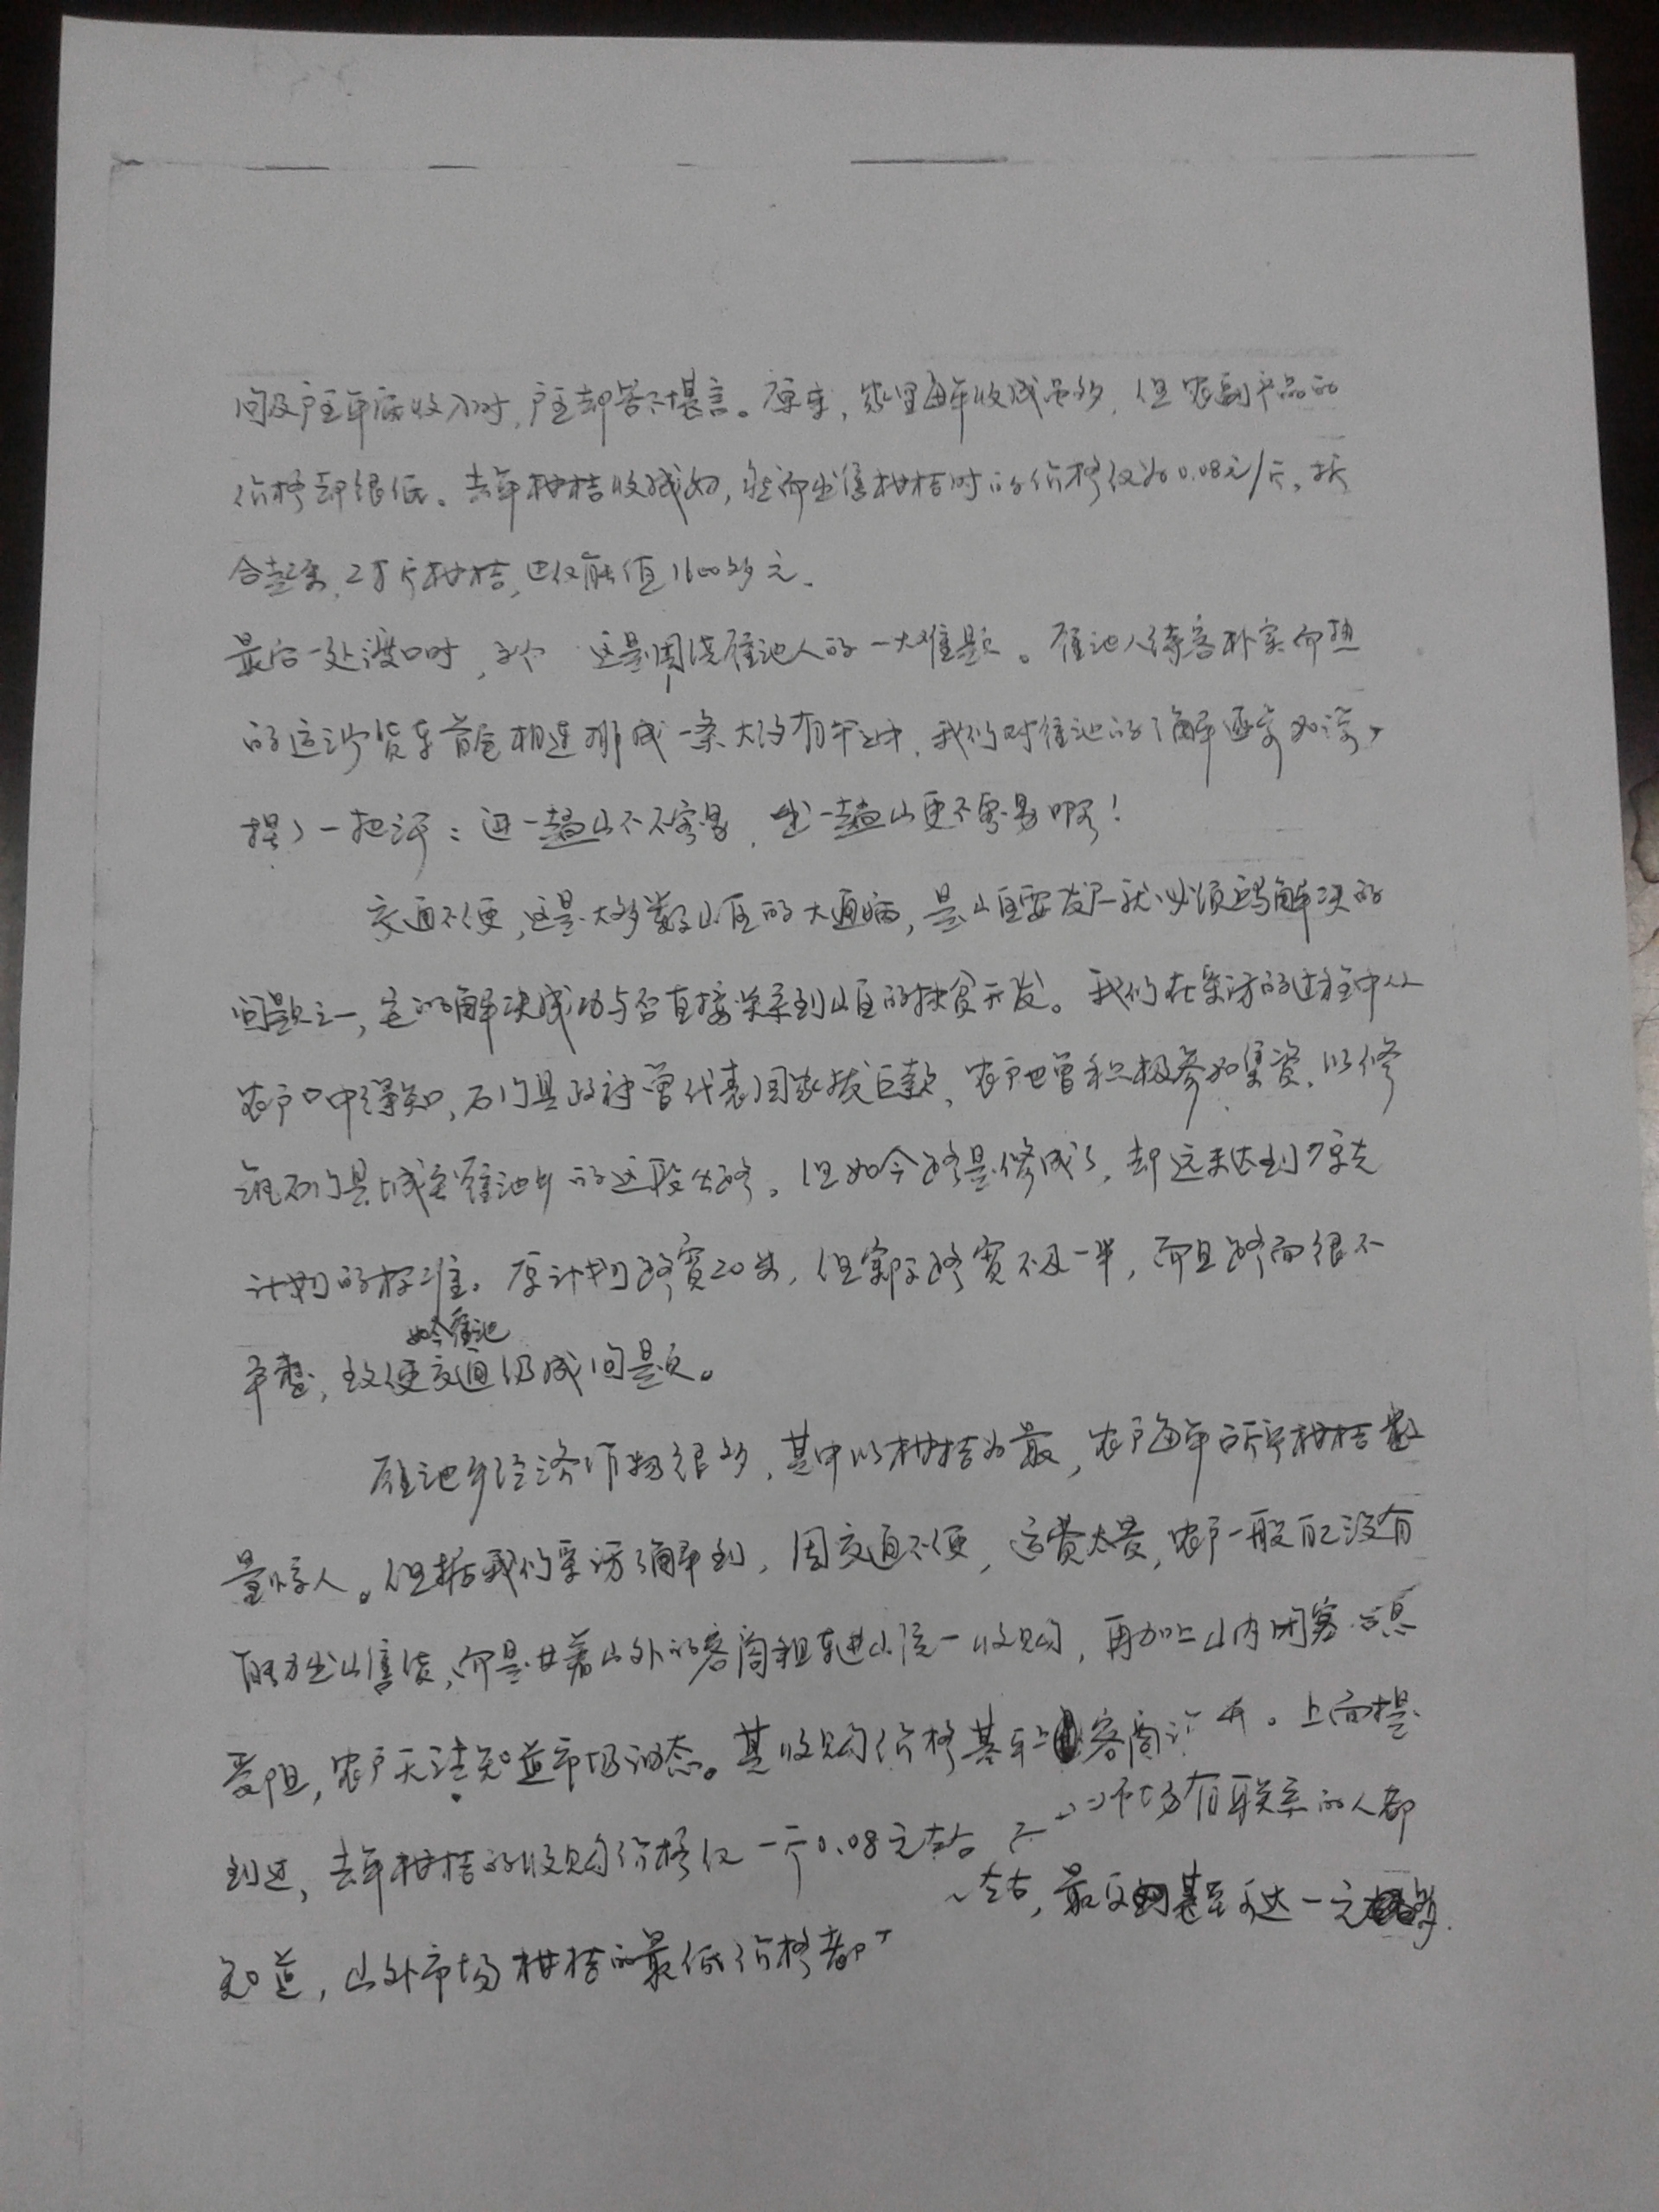 问及户主年底收入时,户主却苦不堪言。原来,家里每年收成虽多,但农副产品的
价格却很低。去年柑桔收成好,然而出售柑桔时的价格仅为0.08元/斤。折
合起来,2万斤柑桔,也仅能值1600多元.
最后一处渡口时, 这是困扰雁池人的一大难题。雁池人待客朴实而热
的运沙货车首尾相连排成一条大 我们对雁池的了解逐渐加深,
一把汗:进一趟山不容易,出一趟山更不容易啊!
交通不便,这是大多数山区的大通病,是山区要发展就必须 解决的
问题之一,它的解决成功与否直接关系到山区的扶贫开发。我们在采访的过程中从
农户口中得知,石门县政府曾代表国家拨巨款,农户也曾积极参加集资,以修
筑石门县城至雁池乡的这段公路。但如今路是修成了,却远未达到原先
计划的标准。原计划路宽20米,但实际路宽不及一半,而且路面很不
如今雁池
平整,致使交通仍成问题。
雁池乡经济作物很多,其中以柑桔为最,农户每年所产柑桔数
量惊人。但据我们采访了解到,因交通不便,运费太贵,农户一般自己没有
能力出山售货,而是由着山外的客商租车进山统一收购,再加上山内闭塞,信息
受阻,农户无法知道市场动态。其收购价格基本上由客商 。上面提
到过,去年柑桔的收购价格仅一斤0.08元左右 市场有联系的人都
知道,山外市场柑桔的最低价格都 左右,最 甚至可达一元